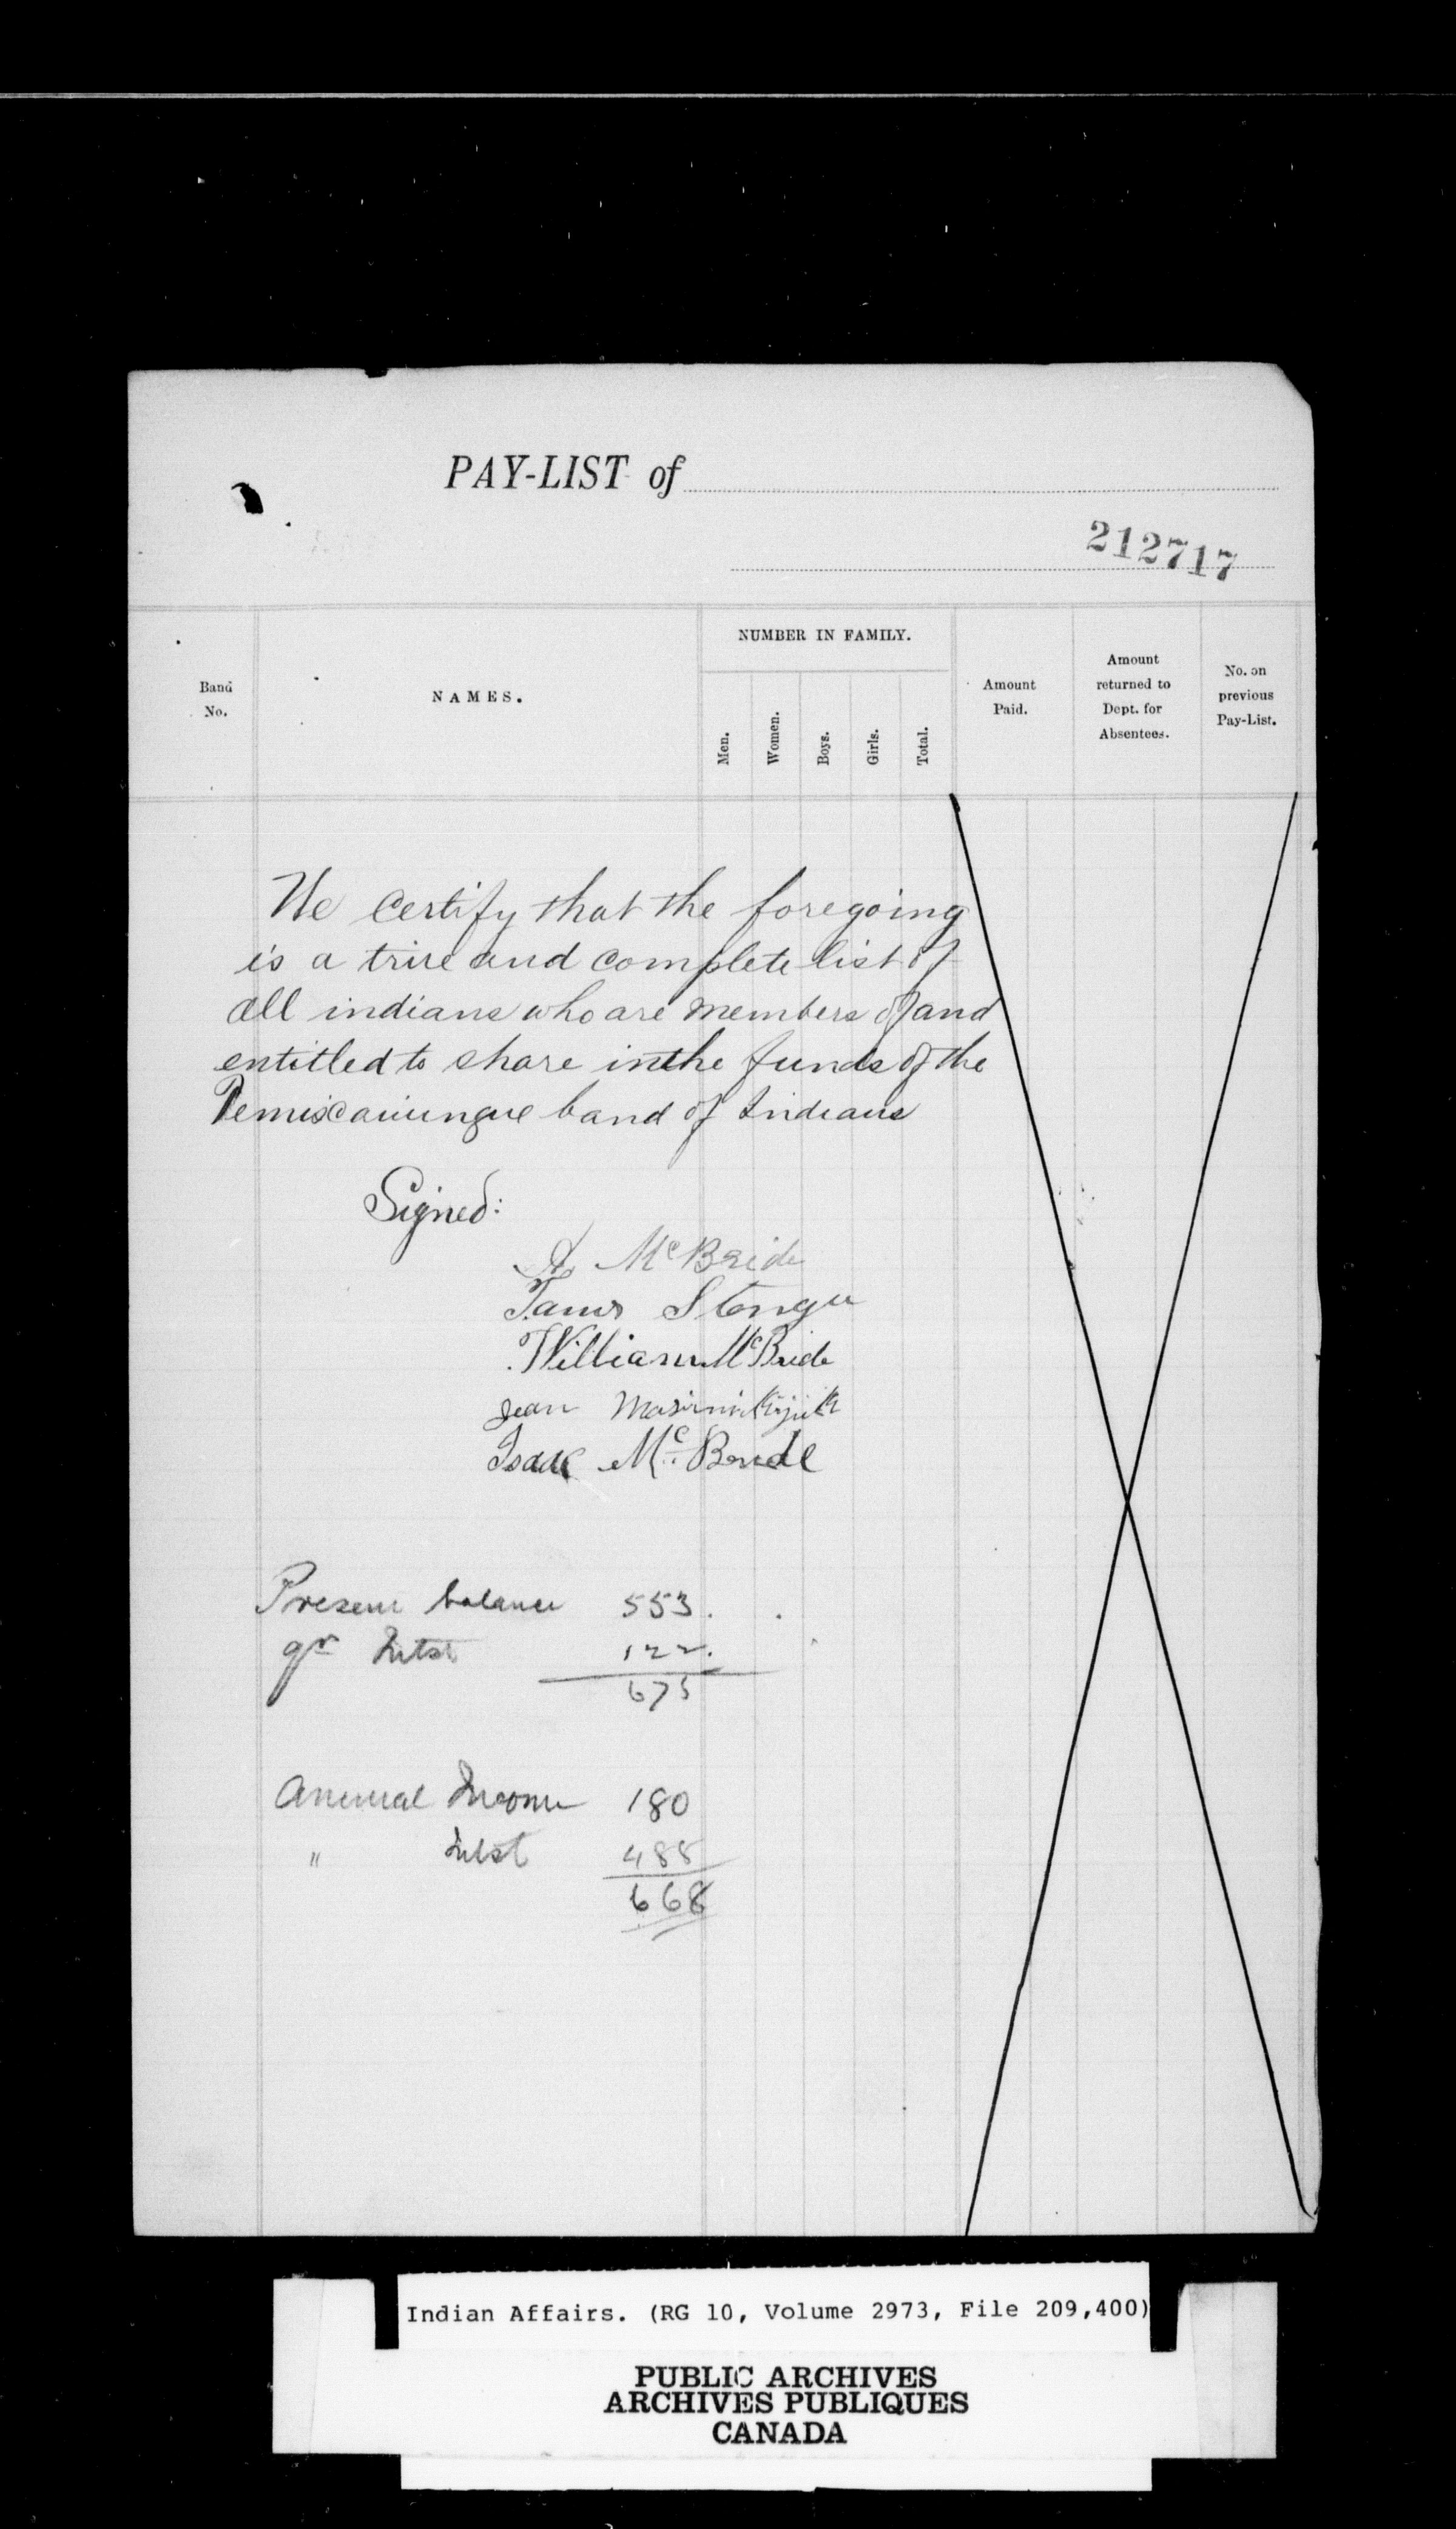 PAY-LIST of
212717
NUMBER IN FAMILY.
Band No.
NAMES.
Men.
Women.
Boys.
Girls.
Total.
Amount Paid.
Amount returned to Dept. for Absentees.
No. on previous Pay-List.
We certify that the foregoing
is a true and complete list of
all indians who are members of and
entitled to share in the funds of the
Temiscamingue band of Indians
Signed:
A McBride
James Stenger
William McBride
Jean
Isaac McBride
Present balance 553.
qr Intst 122.
675
Annual Income 180
" Intst 488
668
Indian Affairs. (RG 10, Volume 2973, File 209,400)
PUBLIC ARCHIVES
ARCHIVES PUBLIQUES
CANADA